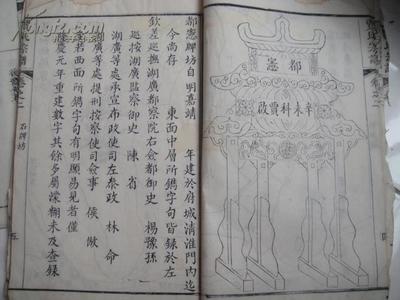 都憲
辛未科賈啟
都憲牌坊自明嘉靖 年建於府城清淮門內迄
今尚存 東面中層所鐫字句皆錄於左
欽差巡撫湖廣都察院右僉都御史 楊豫孫
巡按湖廣監察御史 陳省
湖廣等處承宣布政使司左叅政 林命
湖廣等處提刑按察使司僉事 侯傚
至若西面所鐫字句有明顯易見者僅
隆慶元年重建數字其餘多屬漶糊未及查錄
氏宗譜
石牌坊